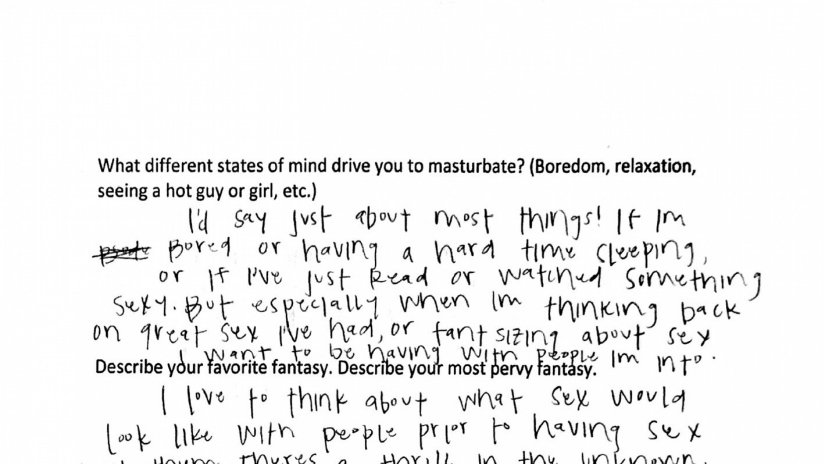 What different states of mind drive you to masturbate? (Boredom, relaxation,
seeing a hot guy or girl, etc.)
I'd say just about most things! If Im
Bored or having a hard time sleeping,
or if I've just read or watched something
sexy. But especially when Im thinking back
on great sex I've had, or fantsizing about sex
I want to be having with people Im into.
Describe your favorite fantasy. Describe your most pervy fantasy.
I love to think about what sex would
look like with people prior to having sex
theres a thrill in the unknown.